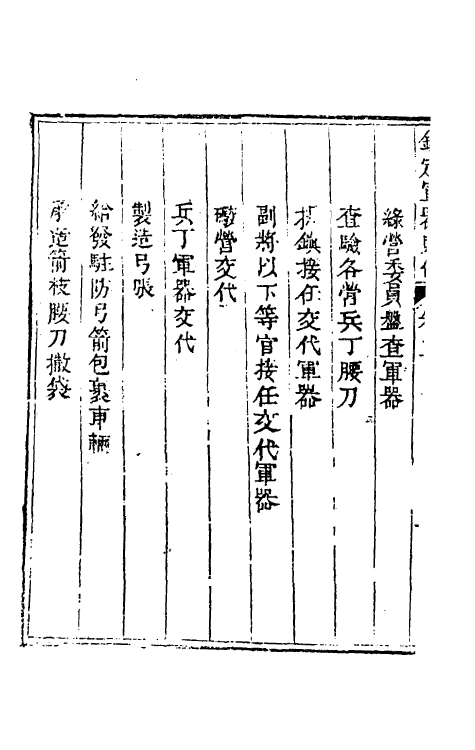 綠營委員盤查軍器
查驗各營兵丁腰刀
提鎮接任交代軍器
副將以下等官接任交代軍器
營交代
兵丁軍器交代
製造弓張
給發駐防弓箭包裹車輛
造箭枝腰刀撒袋